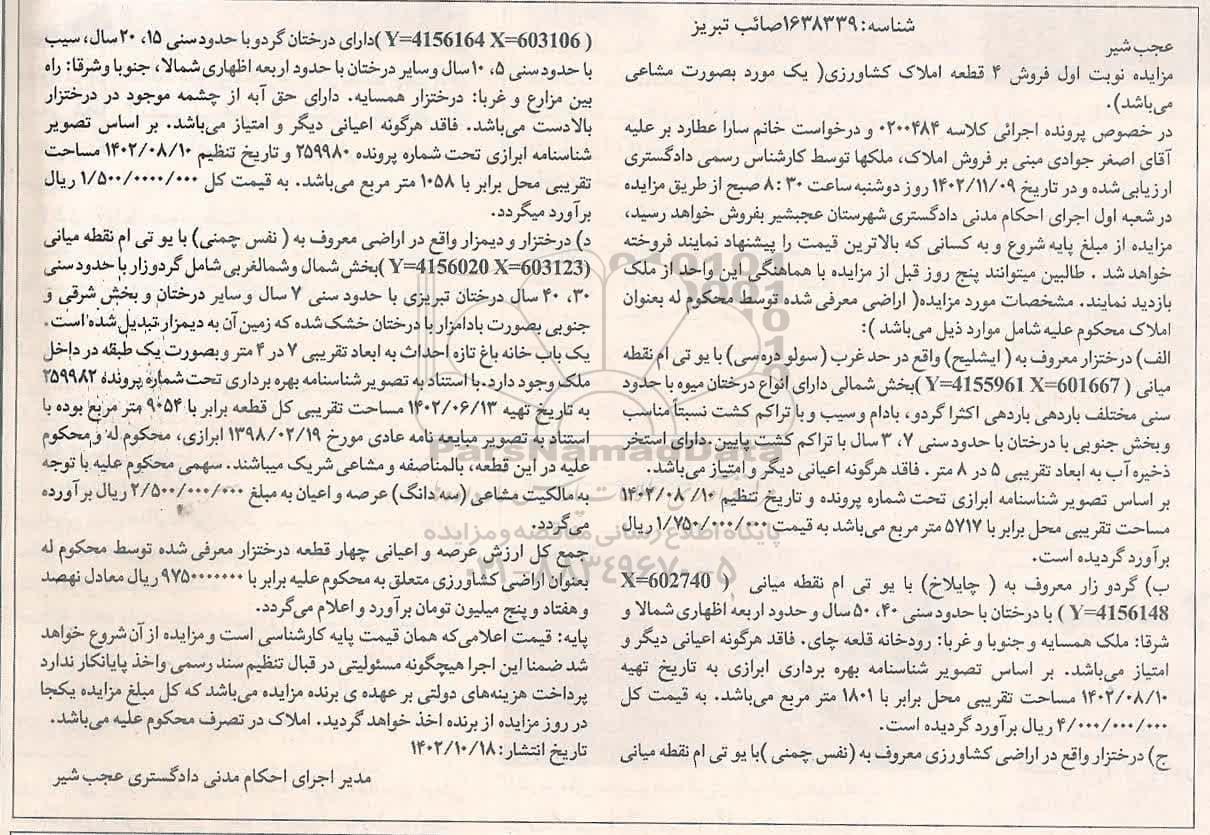 شناسه: ۱۶۳۸۳۳۹صائب تبریز
عجب شیر
مزایده نوبت اول فروش ۴ قطعه املاک کشاورزی( یک مورد بصورت مشاعی
می‌باشد).
در خصوص پرونده اجرائی کلاسه ۰۲۰۰۴۸۴ و درخواست خانم سارا عطارد بر علیه
آقای اصغر جوادی مبنی بر فروش املاک، ملکها توسط کارشناس رسمی دادگستری
ارزیابی شده و در تاریخ ۱۴۰۲/۱۱/۰۹ روز دوشنبه ساعت ۸:۳۰ صبح از طریق مزایده
در شعبه اول اجرای احکام مدنی دادگستری شهرستان عجبشیر بفروش خواهد رسید،
مزایده از مبلغ پایه شروع و به کسانی که بالاترین قیمت را پیشنهاد نمایند فروخته
خواهد شد . طالبین میتوانند پنج روز قبل از مزایده با هماهنگی این واحد از ملک
بازدید نمایند. مشخصات مورد مزایده( اراضی معرفی شده توسط محکوم له بعنوان
املاک محکوم علیه شامل موارد ذیل می‌باشد ):
الف) درختزار معروف به ( ایشلیح) واقع در حد غرب ( سولو دره سی) با یو تی ام نقطه
میانی ( Y=4155961 X=601667 )بخش شمالی دارای انواع درختان میوه با حدود
سنی مختلف باردهی باردهی اکثرا گردو، بادام و سیب و با تراکم کشت نسبتاً مناسب
و بخش جنوبی با درختان با حدود سنی ۷، ۳ سال با تراکم کشت پایین .دارای استخر
ذخیره آب به ابعاد تقریبی ۵ در ۸ متر . فاقد هرگونه اعیانی دیگر و امتیاز می‌باشد.
بر اساس تصویر شناسنامه ابرازی تحت شماره پرونده و تاریخ تنظیم ۱۴۰۲/۰۸/۱۰
مساحت تقریبی محل برابر با ۵۷۱۷ متر مربع می‌باشد به قیمت ۱/۷۵۰/۰۰۰/۰۰۰ ریال
برآورد گردیده است.
ب) گردو زار معروف به ( چایلاخ) با یو تی ام نقطه میانی ( X=602740
Y=4156148 ) با درختان با حدود سنی ۴۰، ۵۰ سال و حدود اربعه اظهاری شمالا و
شرقا: ملک همسایه و جنوبا و غربا: رودخانه قلعه چای. فاقد هرگونه اعیانی دیگر و
امتیاز می‌باشد. بر اساس تصویر شناسنامه بهره برداری ابرازی به تاریخ تهیه
۱۴۰۲/۰۸/۱۰ مساحت تقریبی محل برابر با ۱۸۰۱ متر مربع می‌باشد. به قیمت کل
۴/۰۰۰/۰۰۰/۰۰۰ ریال برآورد گردیده است.
ج) درختزار واقع در اراضی کشاورزی معروف به (نفس چمنی )با یو تی ام نقطه میانی
( Y=4156164 X=603106 )دارای درختان گردو با حدود سنی ۱۵، ۲۰ سال، سیب
با حدود سنی ۵، ۱۰ سال و سایر درختان با حدود اربعه اظهاری شمالا، جنوبا و شرقا: راه
بین مزارع و غربا: درختزار همسایه. دارای حق آبه از چشمه موجود در درختزار
بالادست می‌باشد. فاقد هرگونه اعیانی دیگر و امتیاز می‌باشد. بر اساس تصویر
شناسنامه ابرازی تحت شماره پرونده ۲۵۹۹۸۰ و تاریخ تنظیم ۱۴۰۲/۰۸/۱۰ مساحت
تقریبی محل برابر با ۱۰۵۸ متر مربع می‌باشد. به قیمت کل ۱/۵۰۰/۰۰۰۰/۰۰۰ ریال
برآورد میگردد.
د) درختزار و دیمزار واقع در اراضی معروف به ( نفس چمنی) با یو تی ام نقطه میانی
(Y=4156020 X=603123 )بخش شمال و شمالغربی شامل گردوزار با حدود سنی
۳۰، ۴۰ سال درختان تبریزی با حدود سنی ۷ سال و سایر درختان و بخش شرقی و
جنوبی بصورت بادامزار با درختان خشک شده که زمین آن به دیمزار تبدیل شده است.
یک باب خانه باغ تازه احداث به ابعاد تقریبی ۷ در ۴ متر و بصورت یک طبقه در داخل
ملک وجود دارد.با استناد به تصویر شناسنامه بهره برداری تحت شماره پرونده ۲۵۹۹۸۲
به تاریخ تهیه ۱۴۰۲/۰۶/۱۳ مساحت تقریبی کل قطعه برابر با ۹۰۵۴ متر مربع بوده با
استناد به تصویر مبایعه نامه عادی مورخ ۱۳۹۸/۰۲/۱۹ ابرازی، محکوم له و محکوم
علیه در این قطعه، بالمناصفه و مشاعی شریک میباشند. سهمی محکوم علیه با توجه
به مالکیت مشاعی (سه دانگ) عرصه و اعیان به مبلغ ۲/۵۰۰/۰۰۰/۰۰۰ ریال برآورده
می‌گردد.
جمع کل ارزش عرصه و اعیانی چهار قطعه درختزار معرفی شده توسط محکوم له
بعنوان اراضی کشاورزی متعلق به محکوم علیه برابر با ۹۷۵۰۰۰۰۰۰۰ ریال معادل نهصد
و هفتاد و پنج میلیون تومان برآورد و اعلام می‌گردد.
پایه: قیمت اعلامی‌که همان قیمت پایه کارشناسی است و مزایده از آن شروع خواهد
شد ضمنا این اجرا هیچگونه مسئولیتی در قبال تنظیم سند رسمی واخذ پایانکار ندارد
پرداخت هزینه‌های دولتی بر عهده ی برنده مزایده می‌باشد که کل مبلغ مزایده یکجا
در روز مزایده از برنده اخذ خواهد گردید. املاک در تصرف محکوم علیه می‌باشد.
تاریخ انتشار: ۱۴۰۲/۱۰/۱۸
مدیر اجرای احکام مدنی دادگستری عجب شیر
ParsNamadData
پایگاه اطلاع رسانی مناقصه و مزایده
۰۲۱-۸۸۳۴۹۶۷۰-۵